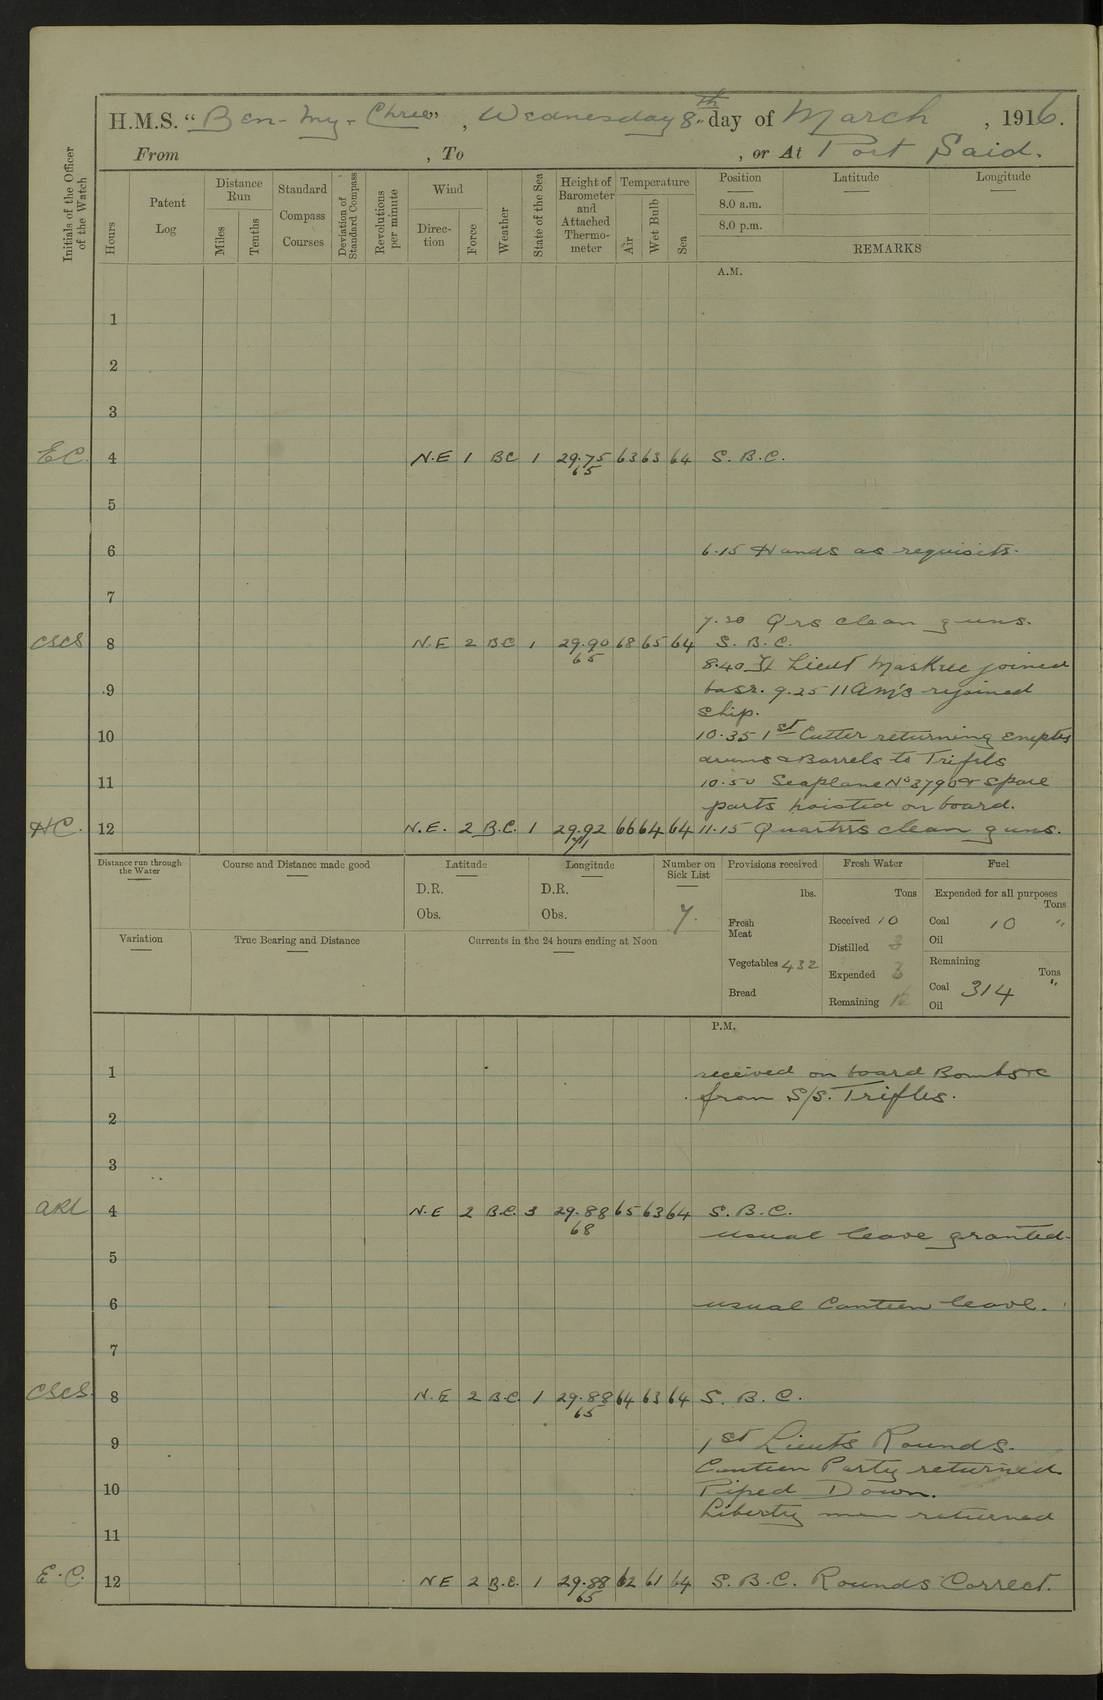 H.M.S. "Ben-my-Chree", Wednesday 8th day of March, 1916.
From , To , or At Port Said.
Initials of the Officer of the Watch
Hours
Patent Log
Distance Run
Miles
Tenths
Standard Compass Courses
Deviation of Standard Compass
Revolutions per minute
Wind
Direc-tion
Force
Weather
State of the Sea
Height of Barometer and Attached Thermo-meter
Temperature
Air
Wet Bulb
Sea
Position
8.0 a.m.
8.0 p.m.
Latitude
Longitude
REMARKS
A.M.
1
2
3
EC. 4 N.E 1 BC 1 29.75 63 63 64 S. B. C.
65
5
6 6.15 Hands as requisite.
7
7.30 Qrs clean guns.
CSCS 8 N.E 2 BC 1 29.90 68 65 64 S. B. C.
65
8.40 Lieut joined
9 base. 9.25 11 AM's rejoined
ship.
10 10.35 1st Cutter returning empty
drums & Barrels to Trifels
11 10.50 Seaplane No & spare
parts hoisted on board.
HC. 12 N.E. 2 B.C. 1 29.92 66 64 64 11.15 Quarters clean guns.
71
Distance run through the Water
Course and Distance made good
Latitude
D.R.
Obs.
Longitude
D.R.
Obs.
Number on Sick List
7.
Provisions received
lbs.
Fresh Meat
Vegetables 432
Bread
Fresh Water
Tons
Received 10
Distilled
Expended
Remaining
Fuel
Expended for all purposes
Tons
Coal 10 "
Oil
Remaining
Tons
Coal 314 "
Oil
Variation
True Bearing and Distance
Currents in the 24 hours ending at Noon
P.M.
1 received on board Bombs &c
from S/S. Trifles.
2
3
ARL 4 N.E 2 B.C. 3 29.88 65 63 64 S. B. C.
68
usual leave granted.
5
6 usual Canteen leave.
7
CSCS. 8 N.E 2 B.C. 1 29.88 64 63 64 S. B. C.
65
9 1st Lieuts Rounds.
Canteen Party returned
10 Piped Down.
Liberty men returned
11
E.C. 12 NE 2 B.C. 1 29.88 62 61 64 S. B. C. Rounds Correct.
65